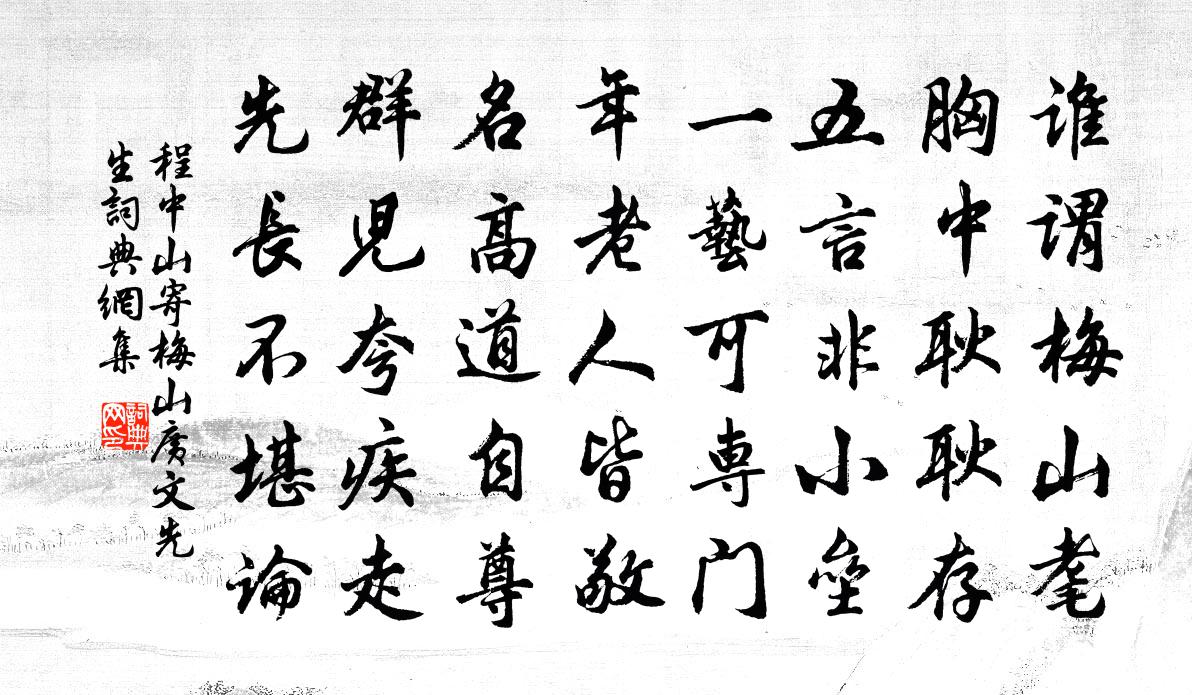 谁谓梅山耄
胸中耿耿存
五言非小垒
一藝可専门
年老人皆敬
名高道自尊
群児夸疾走
先長不堪論
程中山寄梅山广文先
生詞典網集
詞典網印